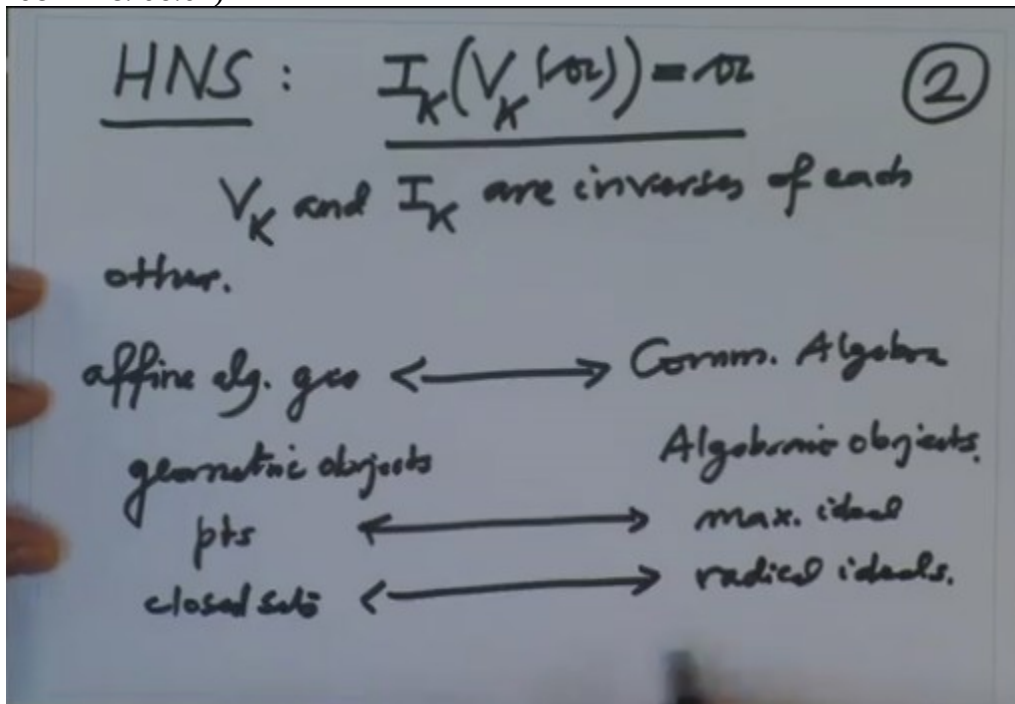 HNS : I_K(V_K(𝔞)) = 𝔞 ②
V_K and I_K are inverses of each
other.
affine alg. geo ⟷ Comm. Algebra
geometric objects Algebraic objects.
pts ⟷ max. ideal
closed sets ⟷ radical ideals.